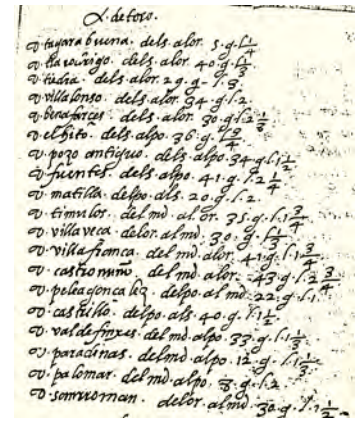 L. de toro.
v. tagarabuena. dels alor. 5. g. l. 1/4
v. tiedra. dels. alor. 29. g. l. 3.
v. villalonso. dels. alor. 34. g. l. 2.
v. benafarces. dels. alor. 30. g. l. 2 1/3
v. el hito. dels. alpo. 36. g. l. 3/4
v. pozo antiguo. dels. alpo. 34 g. l. 1 1/2
v. fuentes. dels. alpo. 41. g. l. 2 1/4
v. matilla. delpo. als. 20. g. l. 2.
v. timulos. del md. al. or. 35. g. l. 1 3/4
v. villaveca. delor. al md. 30. g. l. 1/3
v. villafranca. del md. alor. 41. g. l. 1 3/4
v. castronuño. del md. alor. 43. g. l. 2 3/4
v. peleagonçalez. delpo. al md. 22. g. l. 1.
v. castrillo. delpo. als. 40. g. l. 1 1/2
v. valdefinxes. del md. alpo. 33. g. l. 1 1/3
v. paradinas. del md. alpo. 12. g. l. 1 1/2
v. palomar. del md. alpo. 8. g. l. 2
v. somrroman. delor. al md. 30. g. l. 1 1/2